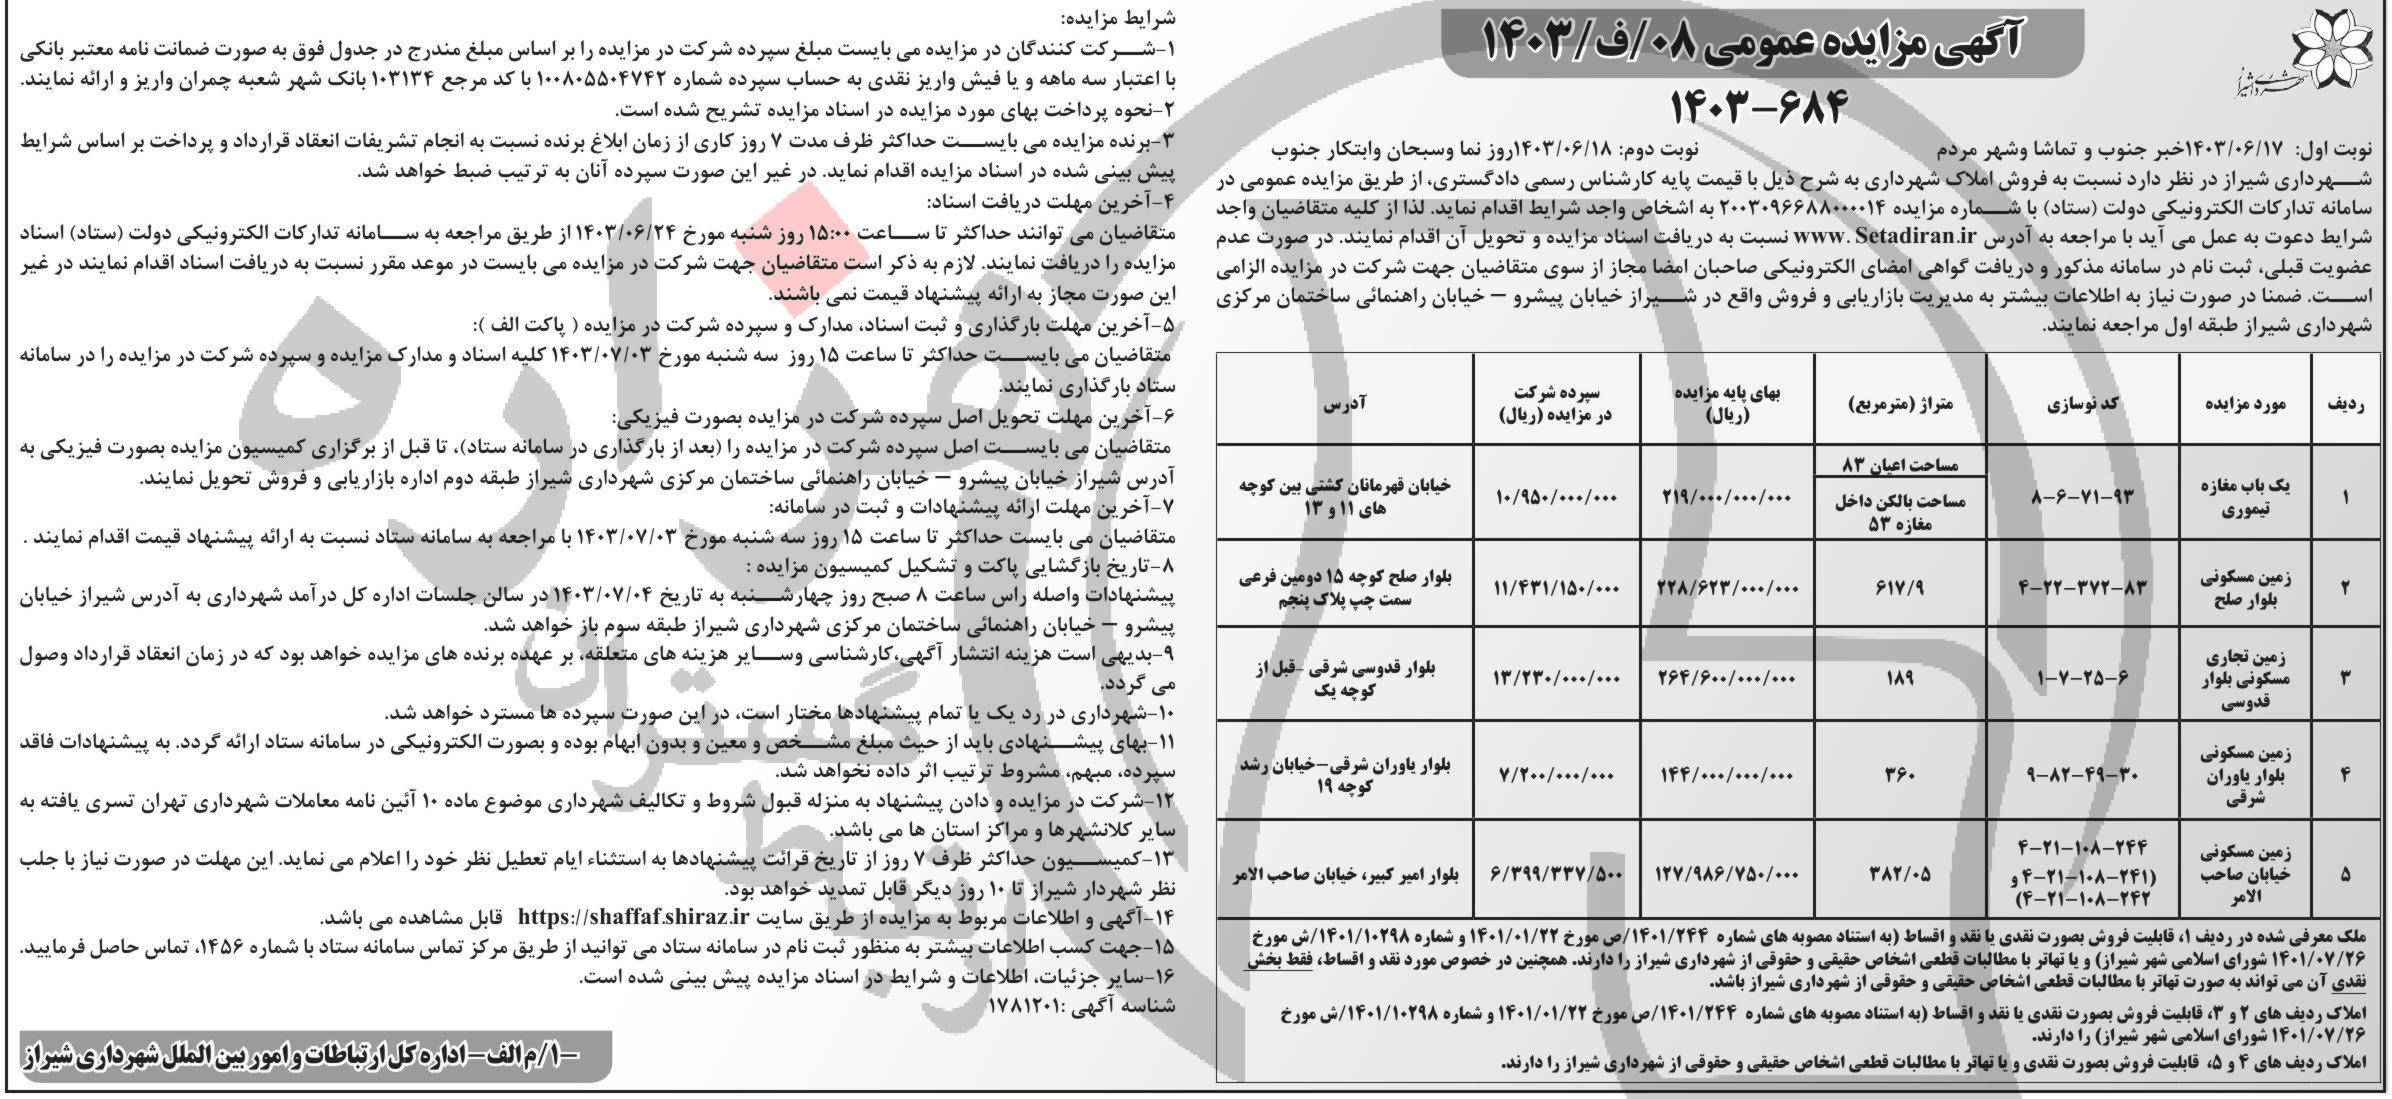 شهرداری شیراز
آگهی مزایده عمومی ۰۸/ف/۱۴۰۳
۱۴۰۳-۶۸۴
نوبت اول: ۱۴۰۳/۰۶/۱۷خبر جنوب و تماشا وشهر مردم نوبت دوم: ۱۴۰۳/۰۶/۱۸روز نما وسبحان وابتکار جنوب
شهرداری شیراز در نظر دارد نسبت به فروش املاک شهرداری به شرح ذیل با قیمت پایه کارشناس رسمی دادگستری، از طریق مزایده عمومی در
سامانه تدارکات الکترونیکی دولت (ستاد) با شماره مزایده ۲۰۰۳۰۹۶۶۸۸۰۰۰۰۱۴ به اشخاص واجد شرایط اقدام نماید. لذا از کلیه متقاضیان واجد
شرایط دعوت به عمل می آید با مراجعه به آدرس www.Setadiran.ir نسبت به دریافت اسناد مزایده و تحویل آن اقدام نمایند. در صورت عدم
عضویت قبلی، ثبت نام در سامانه مذکور و دریافت گواهی امضای الکترونیکی صاحبان امضا مجاز از سوی متقاضیان جهت شرکت در مزایده الزامی
است. ضمنا در صورت نیاز به اطلاعات بیشتر به مدیریت بازاریابی و فروش واقع در شیراز خیابان پیشرو – خیابان راهنمائی ساختمان مرکزی
شهرداری شیراز طبقه اول مراجعه نمایند.
ردیف مورد مزایده کد نوسازی متراژ (مترمربع) بهای پایه مزایده (ریال) سپرده شرکت در مزایده (ریال) آدرس
۱ یک باب مغازه تیموری ۸-۶-۷۱-۹۳ مساحت اعیان ۸۳ مساحت بالکن داخل مغازه ۵۳ ۲۱۹/۰۰۰/۰۰۰/۰۰۰ ۱۰/۹۵۰/۰۰۰/۰۰۰ خیابان قهرمانان کشتی بین کوچه های ۱۱ و ۱۳
۲ زمین مسکونی بلوار صلح ۴-۲۲-۳۷۲-۸۳ ۶۱۷/۹ ۲۲۸/۶۲۳/۰۰۰/۰۰۰ ۱۱/۴۳۱/۱۵۰/۰۰۰ بلوار صلح کوچه ۱۵ دومین فرعی سمت چپ پلاک پنجم
۳ زمین تجاری مسکونی بلوار قدوسی ۱-۷-۲۵-۶ ۱۸۹ ۲۶۴/۶۰۰/۰۰۰/۰۰۰ ۱۳/۲۳۰/۰۰۰/۰۰۰ بلوار قدوسی شرقی -قبل از کوچه یک
۴ زمین مسکونی بلوار یاوران شرقی ۹-۸۲-۴۹-۳۰ ۳۶۰ ۱۴۴/۰۰۰/۰۰۰/۰۰۰ ۷/۲۰۰/۰۰۰/۰۰۰ بلوار یاوران شرقی-خیابان رشد کوچه ۱۹
۵ زمین مسکونی خیابان صاحب الامر ۴-۲۱-۱۰۸-۲۴۴ (۴-۲۱-۱۰۸-۲۴۱ و ۴-۲۱-۱۰۸-۲۴۲) ۳۸۲/۰۵ ۱۲۷/۹۸۶/۷۵۰/۰۰۰ ۶/۳۹۹/۳۳۷/۵۰۰ بلوار امیر کبیر، خیابان صاحب الامر
ملک معرفی شده در ردیف ۱، قابلیت فروش بصورت نقدی یا نقد و اقساط (به استناد مصوبه های شماره ۱۴۰۱/۲۴۴/ص مورخ ۱۴۰۱/۰۱/۲۲ و شماره ۱۴۰۱/۱۰۲۹۸/ش مورخ
۱۴۰۱/۰۷/۲۶ شورای اسلامی شهر شیراز) و یا تهاتر با مطالبات قطعی اشخاص حقیقی و حقوقی از شهرداری شیراز را دارند. همچنین در خصوص مورد نقد و اقساط، فقط بخش
نقدی آن می تواند به صورت تهاتر با مطالبات قطعی اشخاص حقیقی و حقوقی از شهرداری شیراز باشد.
املاک ردیف های ۲ و ۳، قابلیت فروش بصورت نقدی یا نقد و اقساط (به استناد مصوبه های شماره ۱۴۰۱/۲۴۴/ص مورخ ۱۴۰۱/۰۱/۲۲ و شماره ۱۴۰۱/۱۰۲۹۸/ش مورخ
۱۴۰۱/۰۷/۲۶ شورای اسلامی شهر شیراز) را دارند.
املاک ردیف های ۴ و ۵، قابلیت فروش بصورت نقدی و یا تهاتر با مطالبات قطعی اشخاص حقیقی و حقوقی از شهرداری شیراز را دارند.
شرایط مزایده:
۱-شرکت کنندگان در مزایده می بایست مبلغ سپرده شرکت در مزایده را بر اساس مبلغ مندرج در جدول فوق به صورت ضمانت نامه معتبر بانکی
با اعتبار سه ماهه و یا فیش واریز نقدی به حساب سپرده شماره ۱۰۰۸۰۵۵۰۴۷۴۲ با کد مرجع ۱۰۳۱۳۴ بانک شهر شعبه چمران واریز و ارائه نمایند.
۲-نحوه پرداخت بهای مورد مزایده در اسناد مزایده تشریح شده است.
۳-برنده مزایده می بایست حداکثر ظرف مدت ۷ روز کاری از زمان ابلاغ برنده نسبت به انجام تشریفات انعقاد قرارداد و پرداخت بر اساس شرایط
پیش بینی شده در اسناد مزایده اقدام نماید. در غیر این صورت سپرده آنان به ترتیب ضبط خواهد شد.
۴-آخرین مهلت دریافت اسناد:
متقاضیان می توانند حداکثر تا ساعت ۱۵:۰۰ روز شنبه مورخ ۱۴۰۳/۰۶/۲۴ از طریق مراجعه به سامانه تدارکات الکترونیکی دولت (ستاد) اسناد
مزایده را دریافت نمایند. لازم به ذکر است متقاضیان جهت شرکت در مزایده می بایست در موعد مقرر نسبت به دریافت اسناد اقدام نمایند در غیر
این صورت مجاز به ارائه پیشنهاد قیمت نمی باشند.
۵-آخرین مهلت بارگذاری و ثبت اسناد، مدارک و سپرده شرکت در مزایده ( پاکت الف ):
متقاضیان می بایست حداکثر تا ساعت ۱۵ روز سه شنبه مورخ ۱۴۰۳/۰۷/۰۳ کلیه اسناد و مدارک مزایده و سپرده شرکت در مزایده را در سامانه
ستاد بارگذاری نمایند.
۶-آخرین مهلت تحویل اصل سپرده شرکت در مزایده بصورت فیزیکی:
متقاضیان می بایست اصل سپرده شرکت در مزایده را (بعد از بارگذاری در سامانه ستاد)، تا قبل از برگزاری کمیسیون مزایده بصورت فیزیکی به
آدرس شیراز خیابان پیشرو – خیابان راهنمائی ساختمان مرکزی شهرداری شیراز طبقه دوم اداره بازاریابی و فروش تحویل نمایند.
۷-آخرین مهلت ارائه پیشنهادات و ثبت در سامانه:
متقاضیان می بایست حداکثر تا ساعت ۱۵ روز سه شنبه مورخ ۱۴۰۳/۰۷/۰۳ با مراجعه به سامانه ستاد نسبت به ارائه پیشنهاد قیمت اقدام نمایند .
۸-تاریخ بازگشایی پاکت و تشکیل کمیسیون مزایده :
پیشنهادات واصله راس ساعت ۸ صبح روز چهارشنبه به تاریخ ۱۴۰۳/۰۷/۰۴ در سالن جلسات اداره کل درآمد شهرداری به آدرس شیراز خیابان
پیشرو – خیابان راهنمائی ساختمان مرکزی شهرداری شیراز طبقه سوم باز خواهد شد.
۹-بدیهی است هزینه انتشار آگهی،کارشناسی وسایر هزینه های متعلقه، بر عهده برنده های مزایده خواهد بود که در زمان انعقاد قرارداد وصول
می گردد.
۱۰-شهرداری در رد یک یا تمام پیشنهادها مختار است، در این صورت سپرده ها مسترد خواهد شد.
۱۱-بهای پیشنهادی باید از حیث مبلغ مشخص و معین و بدون ابهام بوده و بصورت الکترونیکی در سامانه ستاد ارائه گردد. به پیشنهادات فاقد
سپرده، مبهم، مشروط ترتیب اثر داده نخواهد شد.
۱۲-شرکت در مزایده و دادن پیشنهاد به منزله قبول شروط و تکالیف شهرداری موضوع ماده ۱۰ آئین نامه معاملات شهرداری تهران تسری یافته به
سایر کلانشهرها و مراکز استان ها می باشد.
۱۳-کمیسیون حداکثر ظرف ۷ روز از تاریخ قرائت پیشنهادها به استثناء ایام تعطیل نظر خود را اعلام می نماید. این مهلت در صورت نیاز با جلب
نظر شهردار شیراز تا ۱۰ روز دیگر قابل تمدید خواهد بود.
۱۴-آگهی و اطلاعات مربوط به مزایده از طریق سایت https://shaffaf.shiraz.ir قابل مشاهده می باشد.
۱۵-جهت کسب اطلاعات بیشتر به منظور ثبت نام در سامانه ستاد می توانید از طریق مرکز تماس سامانه ستاد با شماره ۱۴۵۶، تماس حاصل فرمایید.
۱۶-سایر جزئیات، اطلاعات و شرایط در اسناد مزایده پیش بینی شده است.
شناسه آگهی :۱۷۸۱۲۰۱
-۱/م الف- اداره کل ارتباطات و امور بین الملل شهرداری شیراز
هزاره
گستران
ارتباط